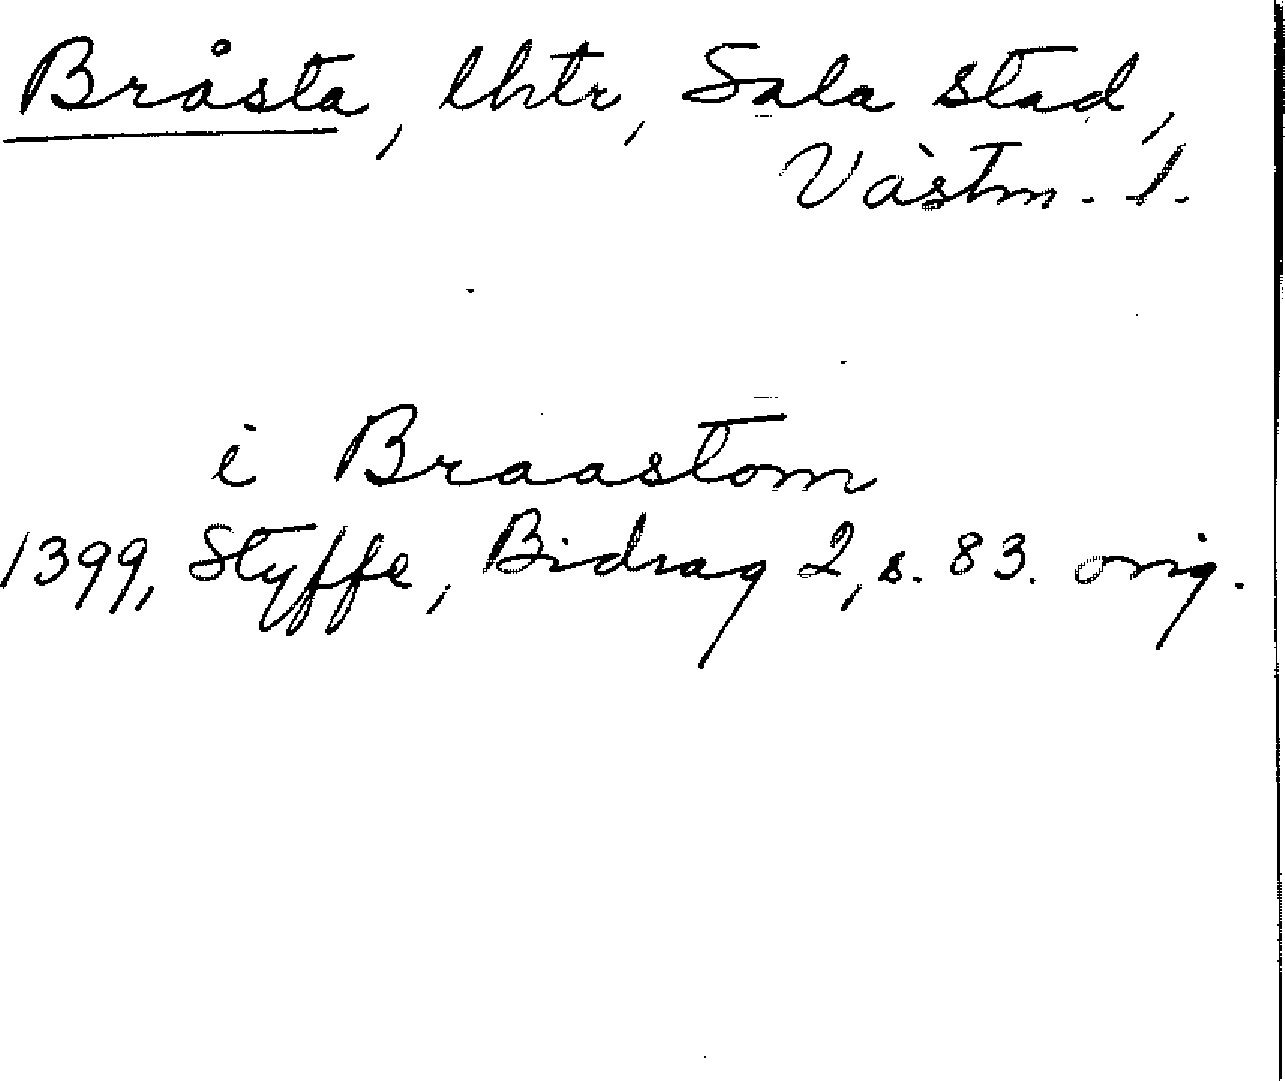 Bråsta, lhtr, Sala stad,
Västm. l.
i Braastom
1399, Styffe, Bidrag 2, s. 83. orig.